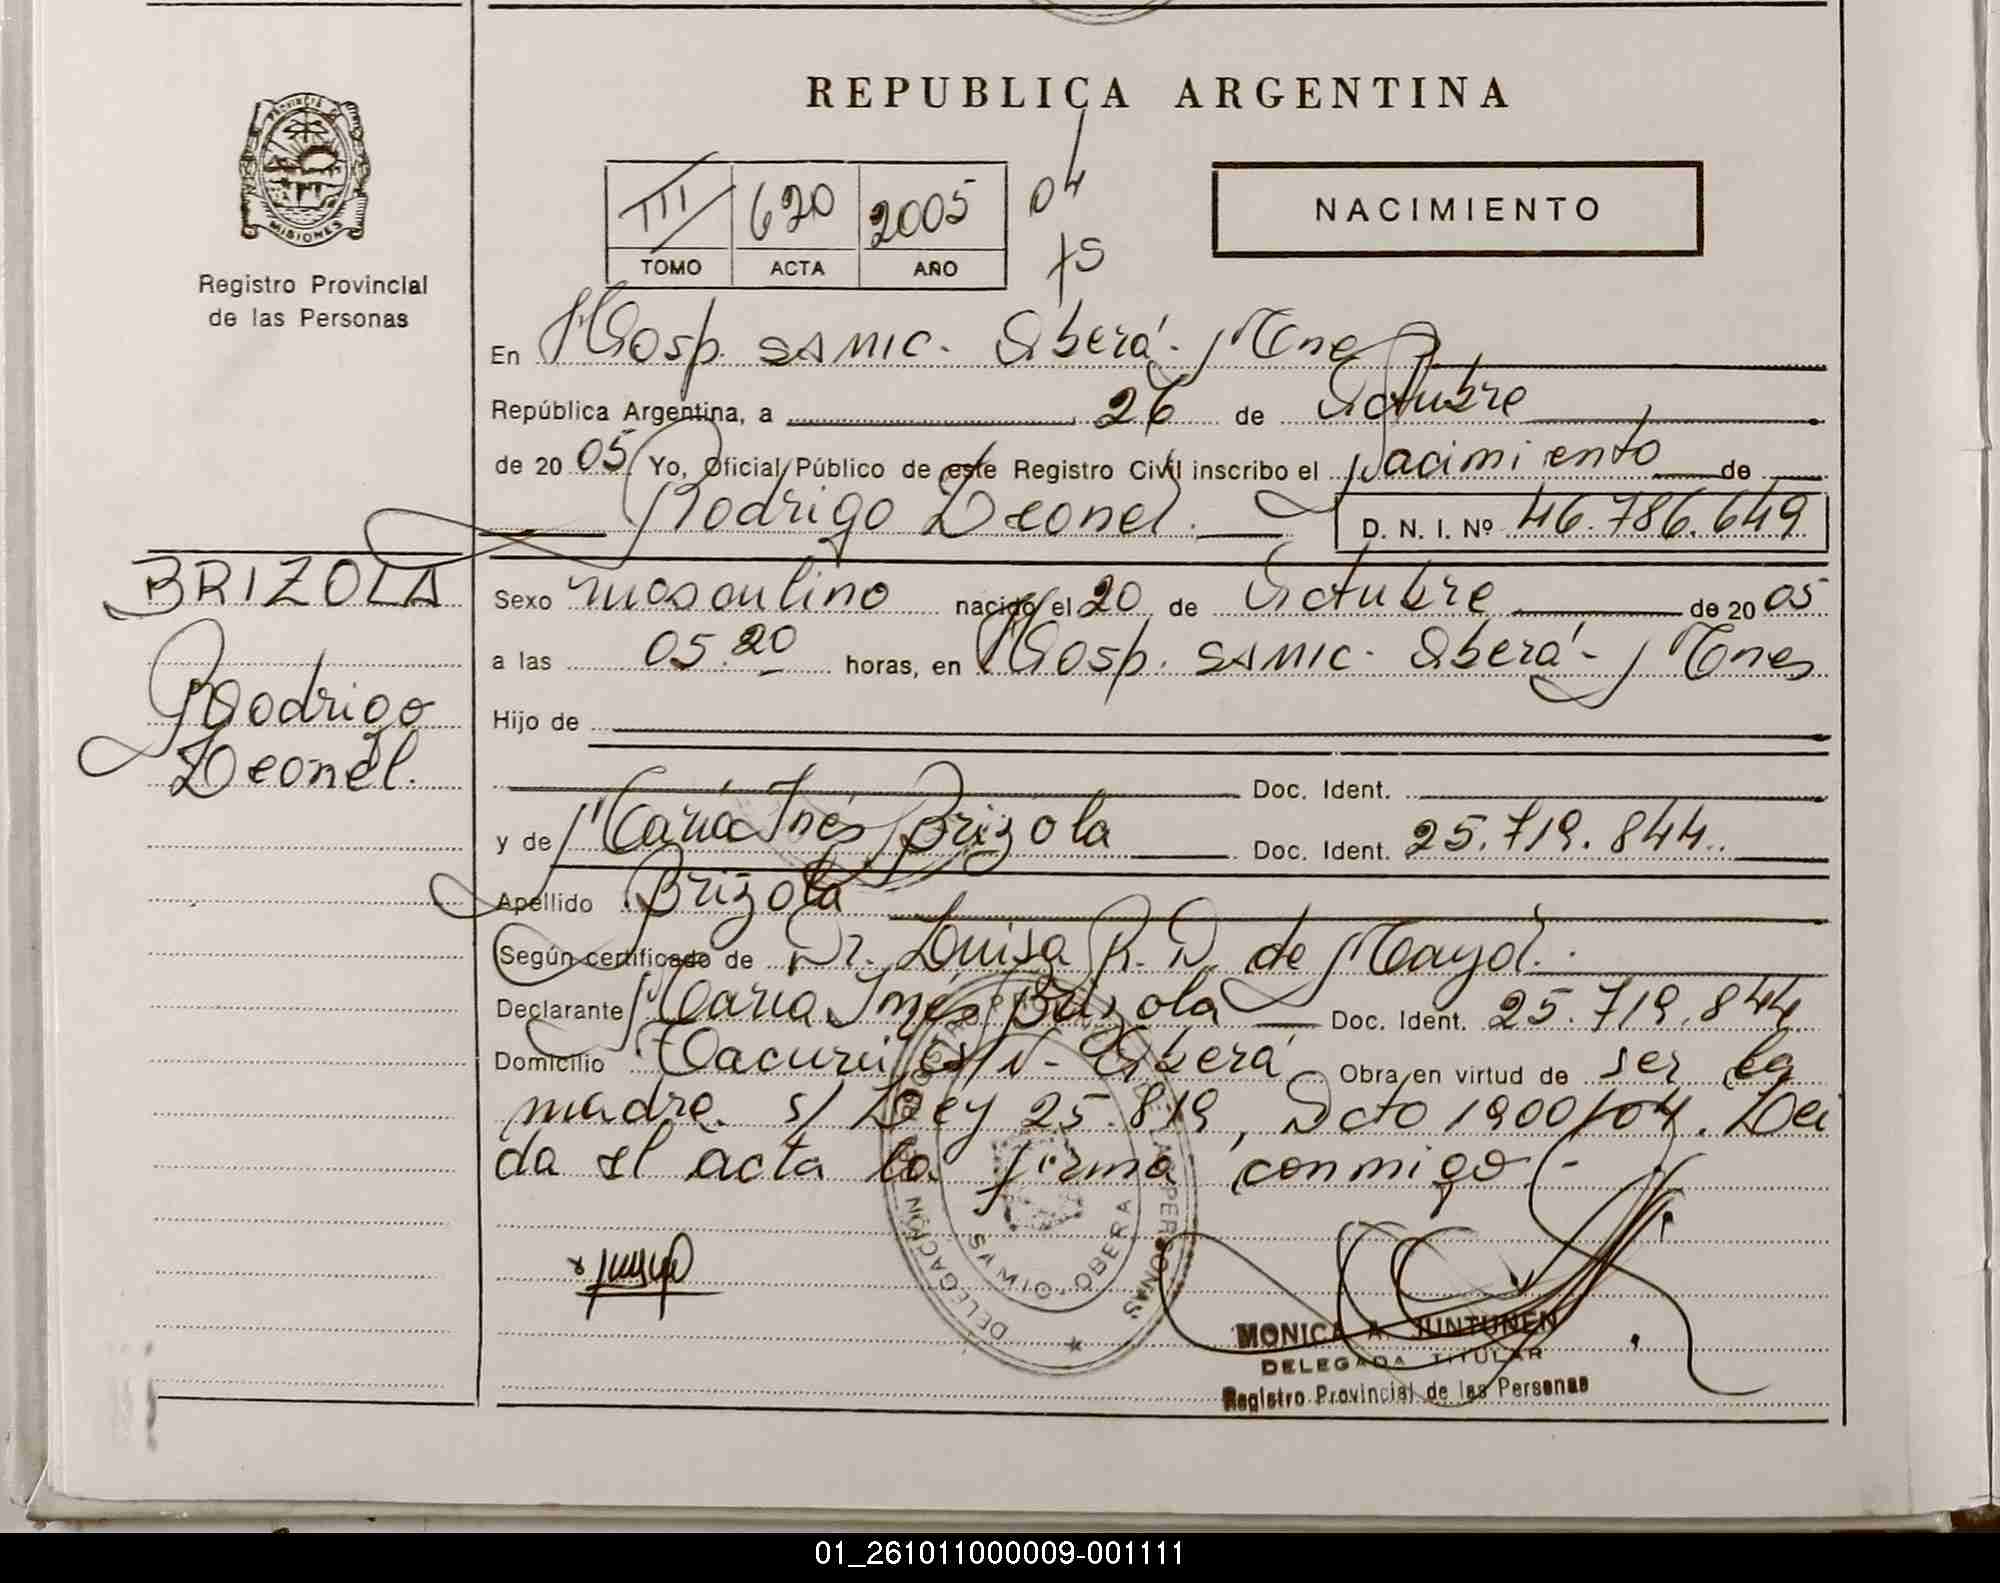 REPUBLICA ARGENTINA
PROVINCIA DE
MISIONES
Registro Provincial
de las Personas
III 620 2005 04
TOMO ACTA AÑO
NACIMIENTO
En Hosp. SAMIC. Oberá. Mnes
República Argentina, a 26 de Octubre
de 20 05 Yo, Oficial Público de este Registro Civil inscribo el Nacimiento de
Rodrigo Leonel. D. N. I. Nº 46.786.649
BRIZOLA
Rodrigo
Leonel.
Sexo masculino nacido el 20 de Octubre de 20 05
a las 05.20 horas, en Hosp. SAMIC. Oberá - Mnes
Hijo de
Doc. Ident.
y de María Inés Brizola Doc. Ident. 25.719.844.
Apellido Brizola
Según certificado de Dr. Luisa R. D. de Mayol.
Declarante María Inés Brizola Doc. Ident. 25.719.844
Domicilio Tacurú s/N - Oberá Obra en virtud de ser la
madre. s/ Ley 25.819, Dcto 1900/04. Lei
da el acta la firma conmigo.-
DELEGACIÓN DE LAS PERSONAS
OBERA
MONICA A. JUNTUNEN
DELEGADA TITULAR
Registro Provincial de las Personas
01_261011000009-001111